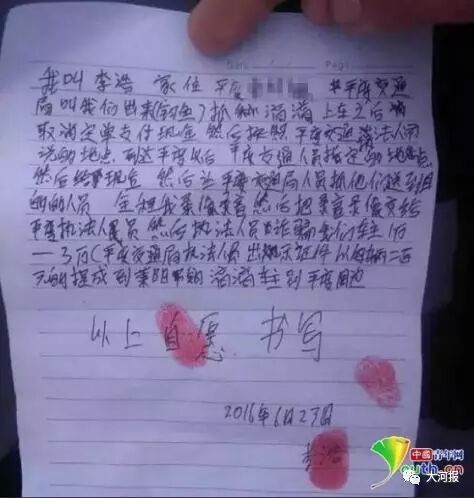 Date Page
我叫 李浩 家住 平度 平度交通
局叫我们出来(钓鱼)抓 滴滴 上车之后 
取消定单支付现金 然后按照 平度交通 法人员
说的地点 到达平度以后 平度交通人员指定的地点
然后给现金 然后让平度交通局人员抓他们 
的人员 全程我录像录音 然后把录音录像交给
平度执法人员 然后执法人员 诈骗 车主1万
——3万(平度交通局执法人员出 示证件 以每辆二百
元的提成 到莱阳 的滴滴车主到平度周边
以上自愿 书写
2016年6月27日
李浩
中國青年网
youth.cn
大河报